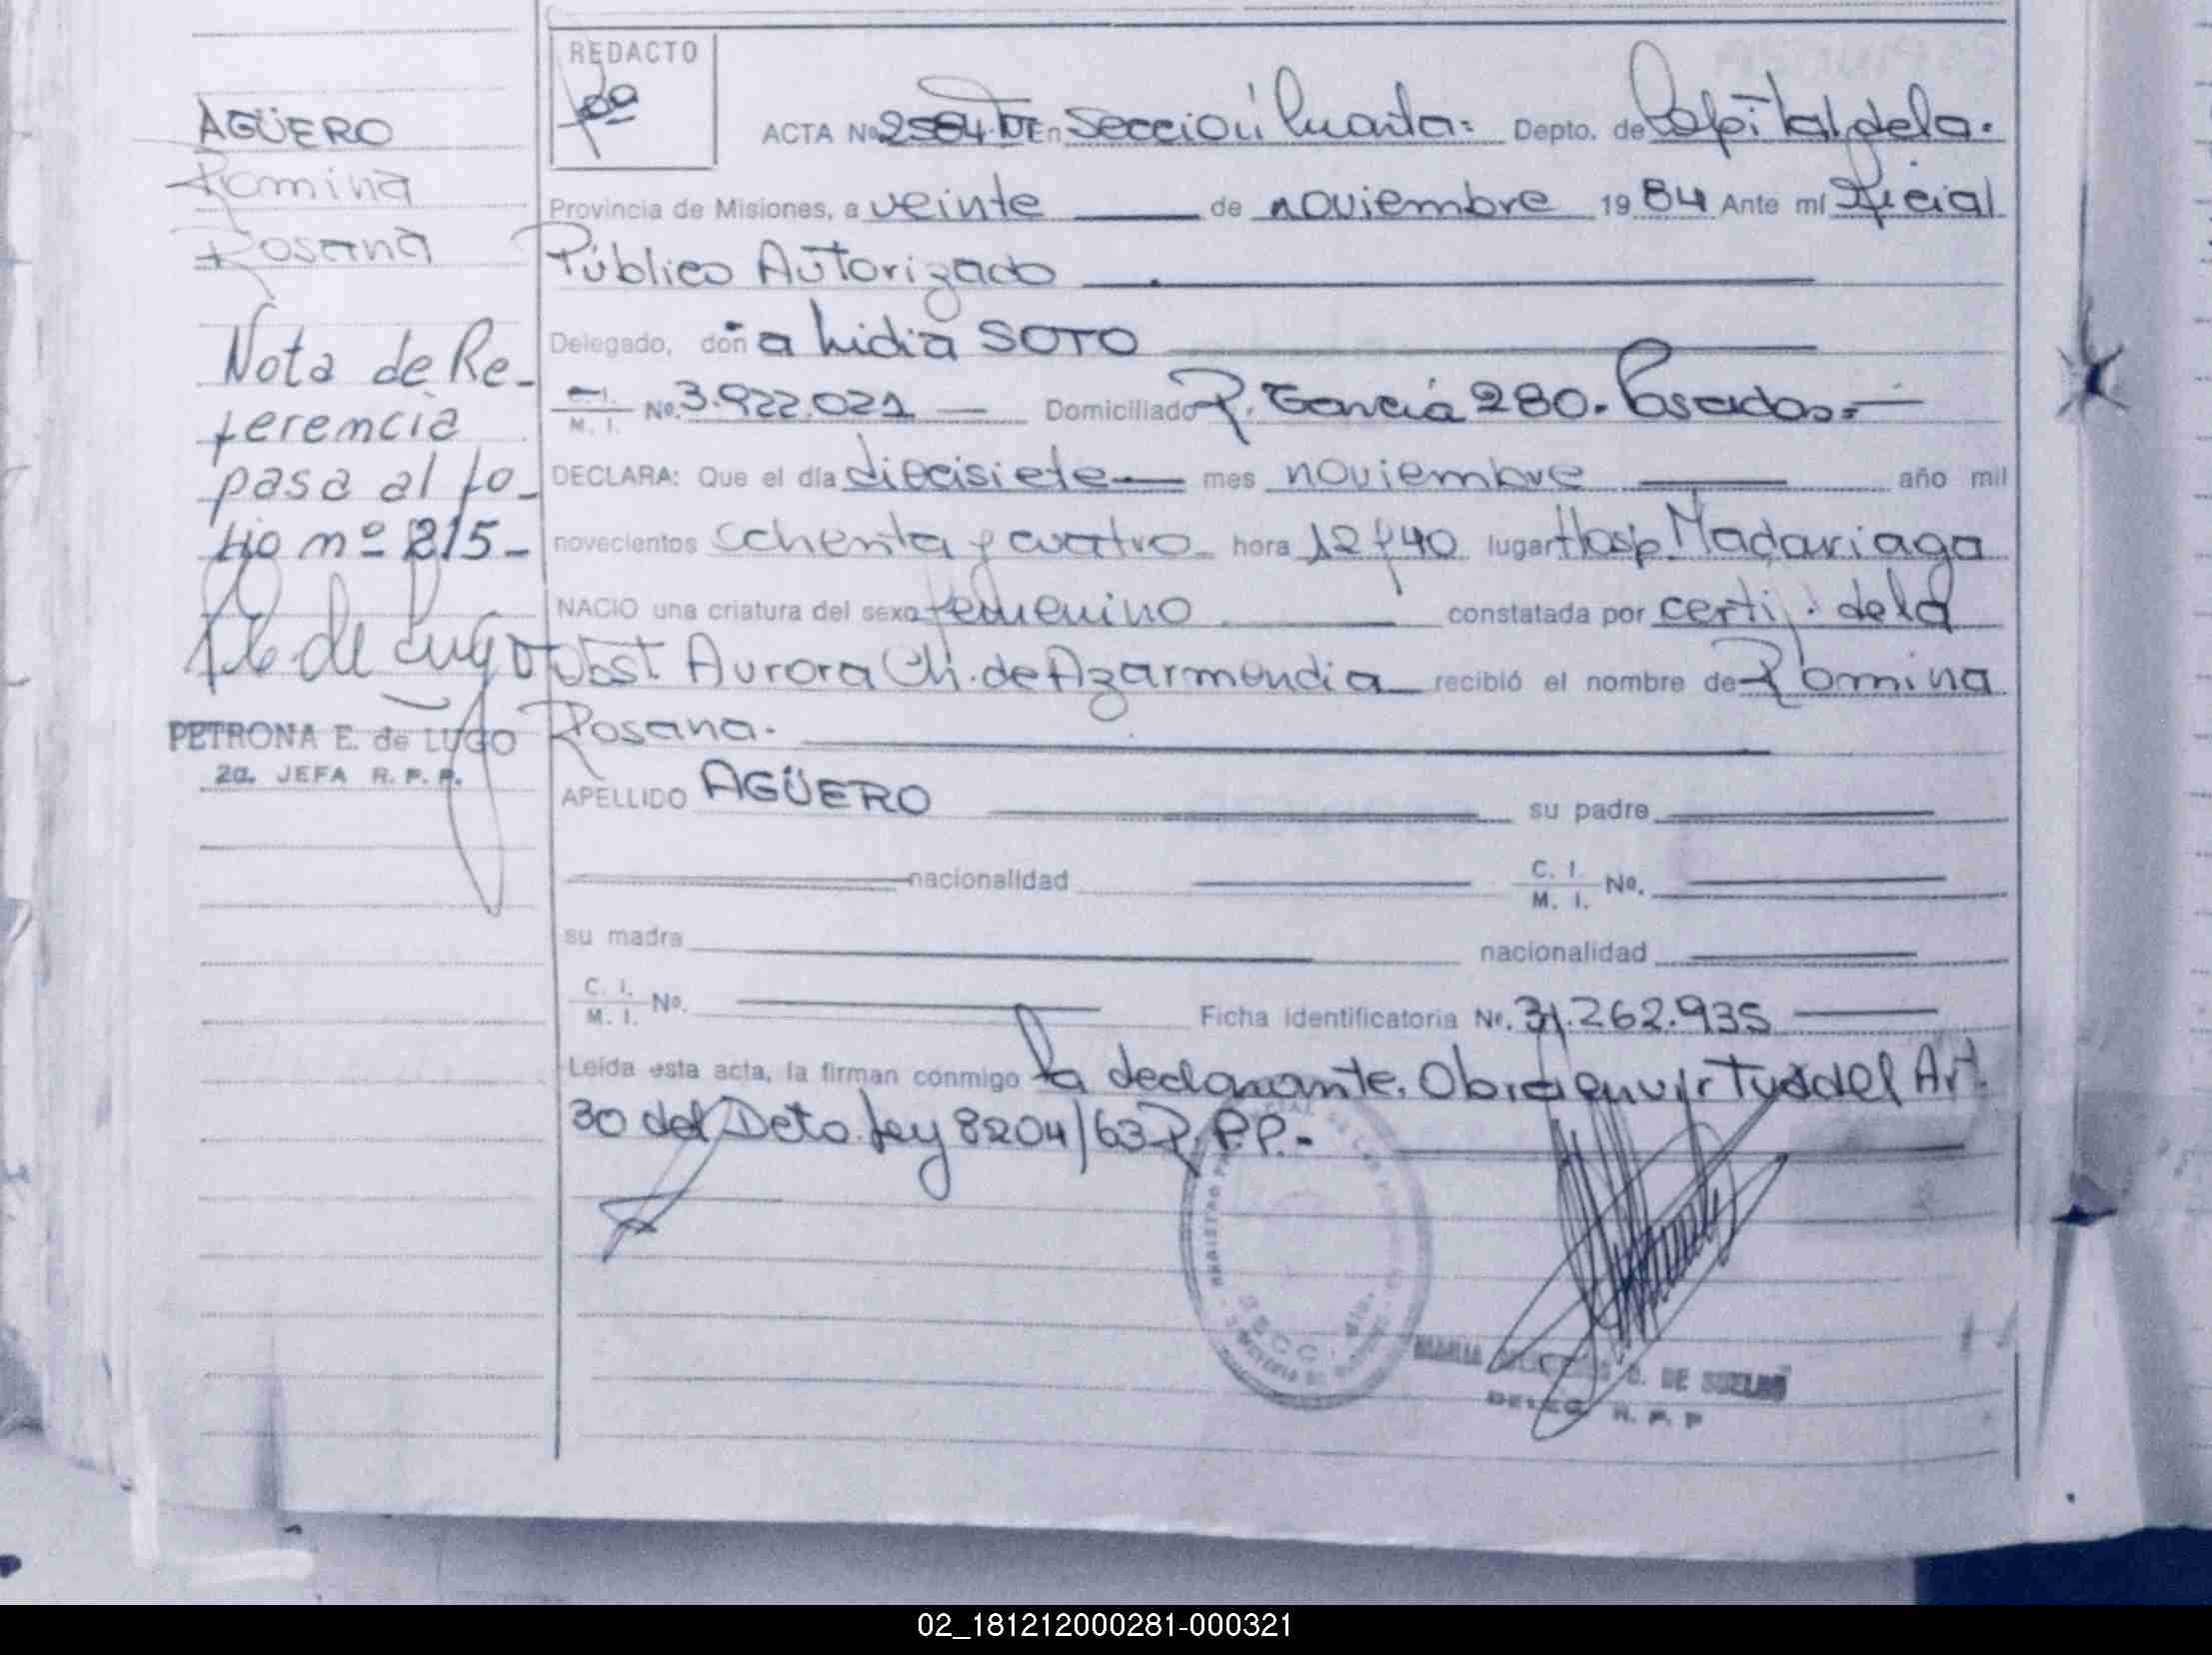 AGÜERO
Romina
Rosana
Nota de Re-
ferencia
pasa al fo-
lio nº 215-
PETRONA E. de LUGO
2a. JEFA R. P. P.
REDACTO
ACTA Nº 2584 En Sección Cuarta: Depto. de Capital de la.
Provincia de Misiones, a veinte de noviembre 1984 Ante mí Oficial
Público Autorizado
Delegado, doña Lidia SOTO
C. I. M. I. No. 3.922.021 Domiciliado P. García 280. Posadas.-
DECLARA: Que el día diecisiete mes noviembre año mil
novecientos ochenta y cuatro hora 12 y 40 lugar Hosp. Madariaga
NACIO una criatura del sexo femenino constatada por certif. de la
Obst. Aurora Ch. de Azarmendia recibió el nombre de Romina
Rosana.
APELLIDO AGÜERO su padre
nacionalidad C. I. M. I. No.
su madre nacionalidad
C. I. M. I. No. Ficha identificatoria No. 31.262.935
Leída esta acta, la firman conmigo la declarante. Obra en virtud del Art.
30 del Deto. Ley 8204/63 R.P.P.-
DE
DELEG. R. P. P
02_181212000281-000321